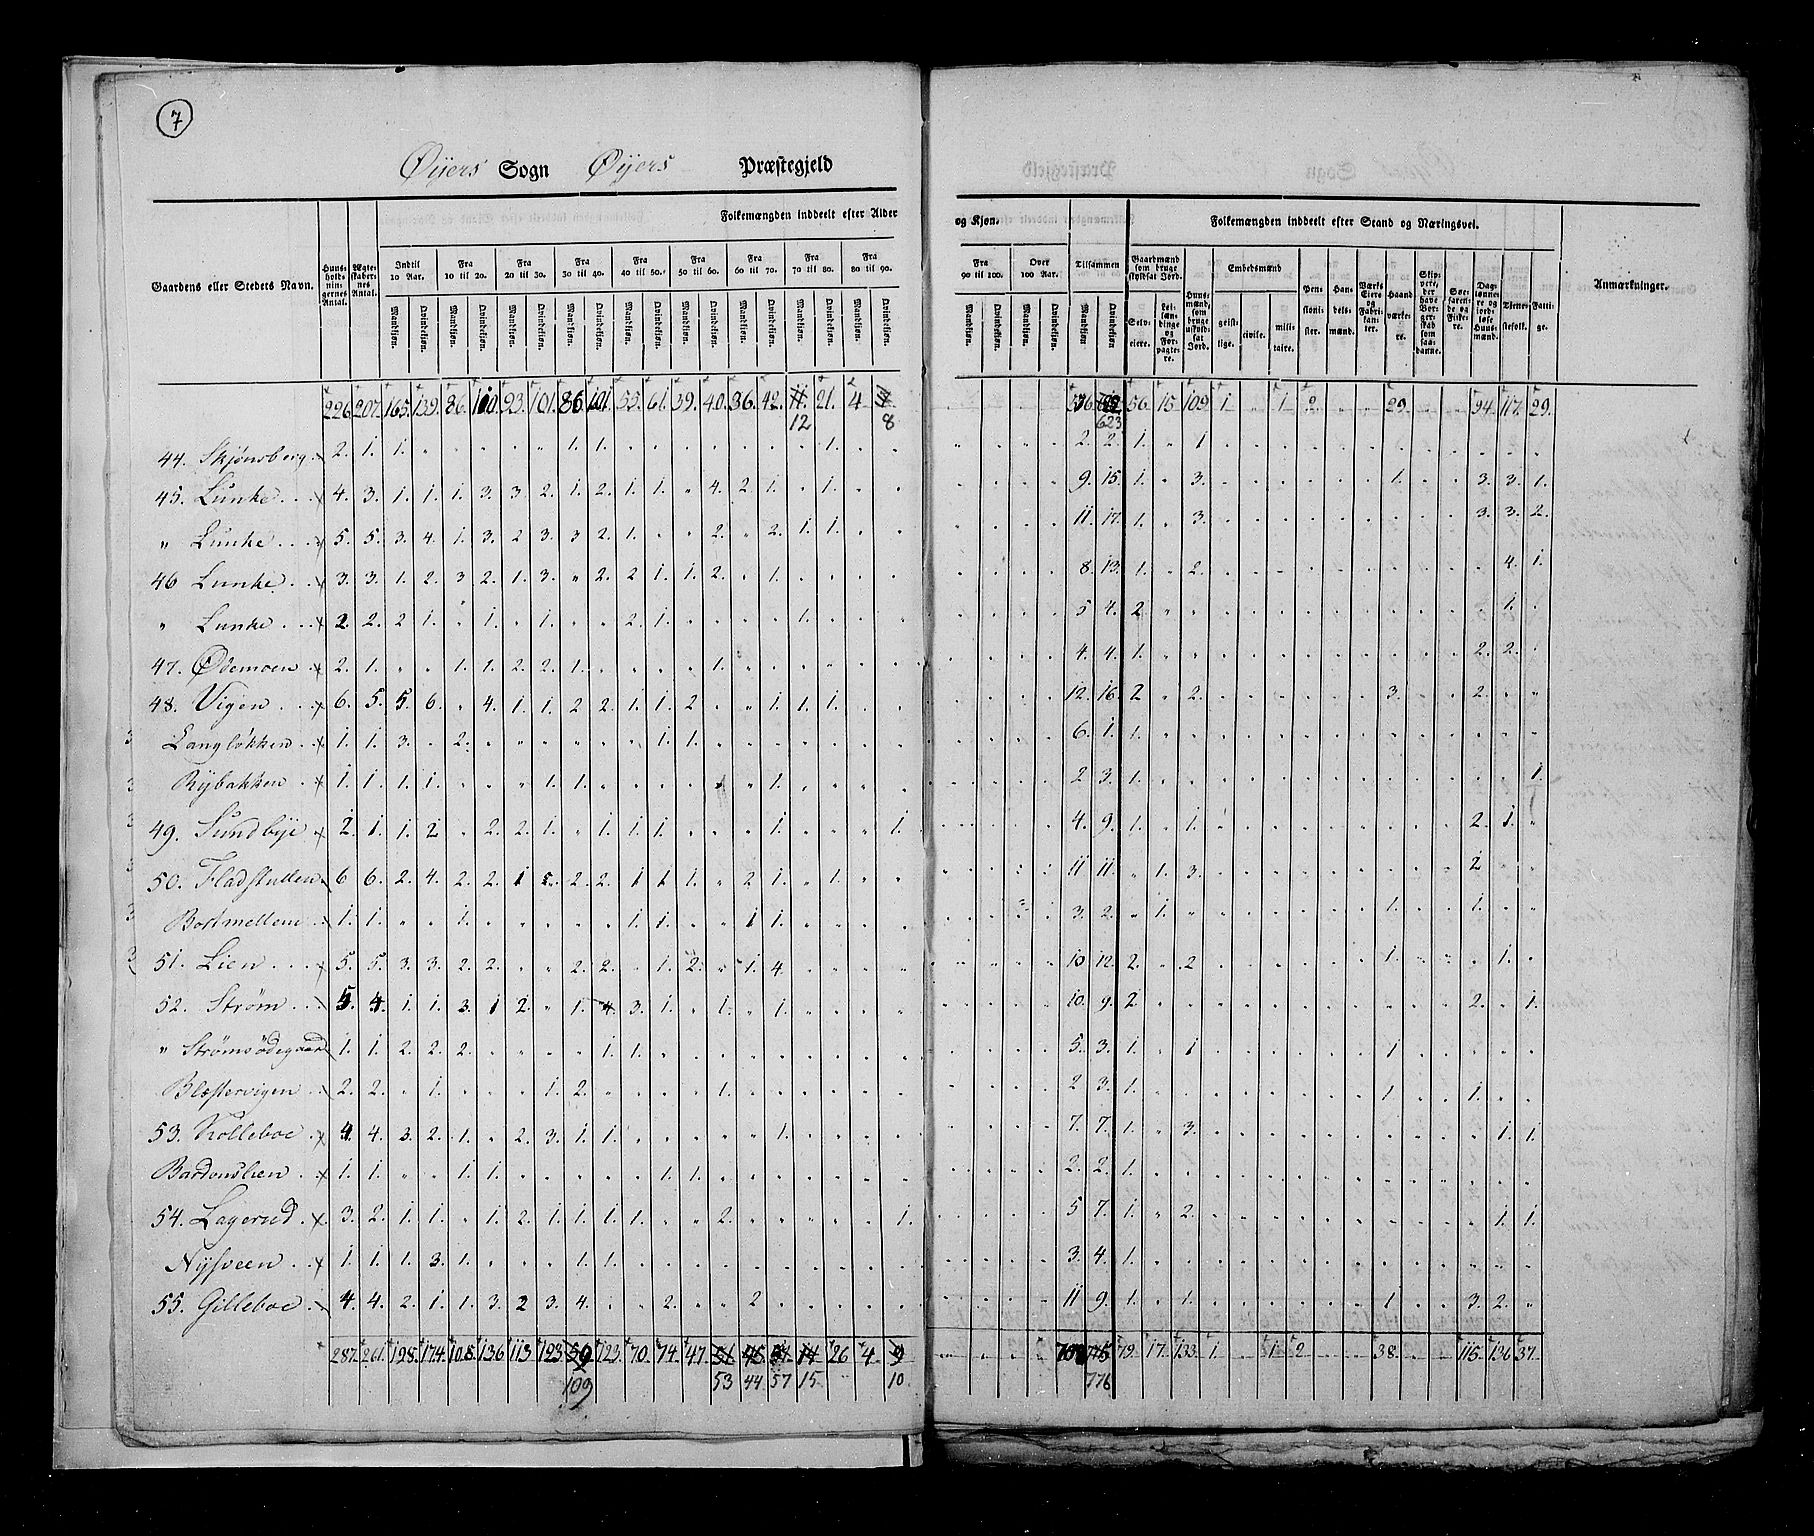 7
Øyers Sogn Øyers Præstegjeld
Folkemængden inddeelt efter Alder og Kjøn. Folkemængden inddeelt efter Stand og Næringsvei.
Gaardens eller Stedets Navn. Huusholdningernes Antal. Ægteskabernes Antal. Indtil 10 Aar. Fra 10 til 20. Fra 20 til 30. Fra 30 til 40. Fra 40 til 50. Fra 50 til 60. Fra 60 til 70. Fra 70 til 80. Fra 80 til 90. Fra 90 til 100. Over 100 Aar. Tilsammen Gaardmænd som bruge skyldsat Jord. Embedsmænd Anmærkninger.
Mandkjøn. Qvindekjøn. Mandkjøn. Qvindekjøn. Mandkjøn. Qvindekjøn. Mandkjøn. Qvindekjøn. Mandkjøn. Qvindekjøn. Mandkjøn. Qvindekjøn. Mandkjøn. Qvindekjøn. Mandkjøn. Qvindekjøn. Mandkjøn. Qvindekjøn. Mandkjøn. Qvindekjøn. Mandkjøn. Qvindekjøn. Mandkjøn. Qvindekjøn. Selveiere. Leilændinge og Forpagtere. Huusmænd, som bruge uskyldsat Jord. geistlige. civile. militaire. Pensionister. Handelsmænd. Værkseiere og Fabrikanter. Haandværkere. Dagslønnere og jordløse Huusmænd. Tjenestefolk. Fattige.
226. 207. 165. 139. 86. 100. 93. 101. 86. 101. 55. 61. 39. 40. 36. 42. 11. 21. 4 56. 15. 109. 1 1. 2. 29. 94. 117. 29.
12 8 623
44. Skjønsberg 2. 1. 1. 1. 1. 1. 2. 2. 1. 1
45. Lunke 4. 3. 1. 1. 1. 3. 3. 2. 1. 2. 1. 1. 4. 2. 1. 1. 9. 15. 1. 3. 1. 3. 3. 1.
" Lunke 5. 5. 3. 4. 1. 3. 2 3. 3 2. 1. 2. 2. 1. 1. 11. 17. 1. 3. 3. 3. 2.
46 Lunke 3. 3. 1. 2. 3 2. 1. 3. 2. 2 1. 1. 2. 1. 8. 13. 1. 2. 4. 1.
" Lunke 2. 2. 2 1. 1. 1. 2. 1. 1. 5 4. 2. 1.
47. Ødemoen 2. 1. 1. 1. 2. 2. 1. 1. 4. 4. 1. 2. 2.
48. Vigen 6. 5. 5. 6. 4. 1. 1. 2 2. 1. 1. 2 1. 1. 1. 12. 16. 2 2. 3. 2.
Langløkken 1. 1. 3. 2. 1. 1. 6. 1. 1.
Rybakken 1. 1. 1. 1. 1. 1. 1. 2 3. 1. 1.
49. Sundbye 2. 1. 1. 2 2. 2. 1. 1. 1. 1. 1. 1. 4. 9. 1. 1. 2. 1.
50. Fladstullen 6 6. 2. 4. 2. 2. 1 5. 2. 2. 1 1. 1. 2 1. 1. 11 11. 1. 3. 2
Bortmellem 1. 1. 1. 1. 1. 1 1. 3. 2. 1. 1. 1.
51. Lien 5. 5. 3. 3. 2. 2. 2. 2. 1. 2. 1. 4. 10 12. 2. 2 1. 1.
52. Strøm 5. 4. 1. 1. 3. 1 2. 1. 4. 3. 1. 1. 1. 10. 9. 2. 2. 1.
" Strømsødegaard 1. 1. 2. 2. 2. 1. 1. 5. 3. 1. 1 1
Blæstervigen 2. 2. 1. 1. 2. 1. 2 3. 1. 1 1.
53. Kolleboe 4. 4. 3. 2. 1. 2. 3. 1. 1. 1. 7. 7. 1. 3. 1. 1.
Bardonslien 1. 1. 1. 1. 1. 1. 2. 2. 1.
54. Lagerud 3. 2. 1. 1. 1. 2. 1. 1. 1. 1. 2. 1. 5 7. 1. 2. 1. 1.
Nysveen 1. 1. 1. 3. 1. 1. 1. 3. 4. 1.
55. Gilleboe 4. 4. 2. 1. 1. 3. 2 3. 4. 2. 2 11 9. 1. 1. 1 3. 2.
287. 261. 198. 174. 108. 136 113. 123. 123. 70. 74. 47. 51 45. 14 26 4 9 79. 17. 133. 1. 1. 2 38. 115. 136 37.
109 53 44 57 15 10 776